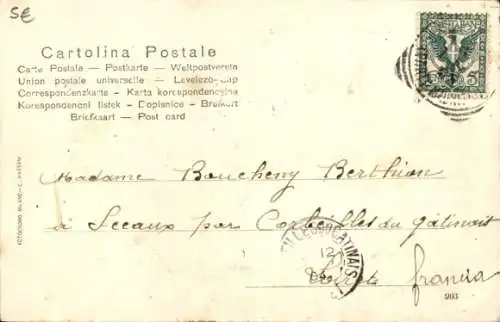 SE
Cartolina Postale
Carte Postale — Postkarte — Weltpostverein
Union postale universelle — Levelező-Lap
Correspondenzkarte - Karta korespondencyjna
Korespondenční lístek - Dopisnice - Brefkort
Briefkaart — Post card
5
Madame Boucheny Berthion
à Sceaux par Corbeilles du Gâtinais
12
Loiret francia